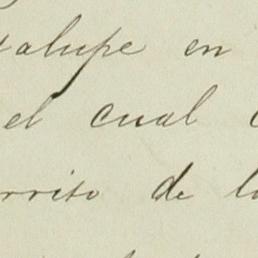 alupe en
el cual
rrito de